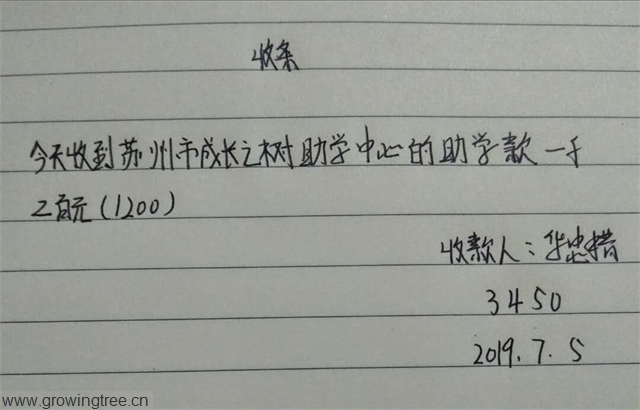 收条
今天收到苏州市成长之树助学中心的助学款一千
二百元(1200)
收款人:华忠措
3450
2019.7.5
www.growingtree.cn